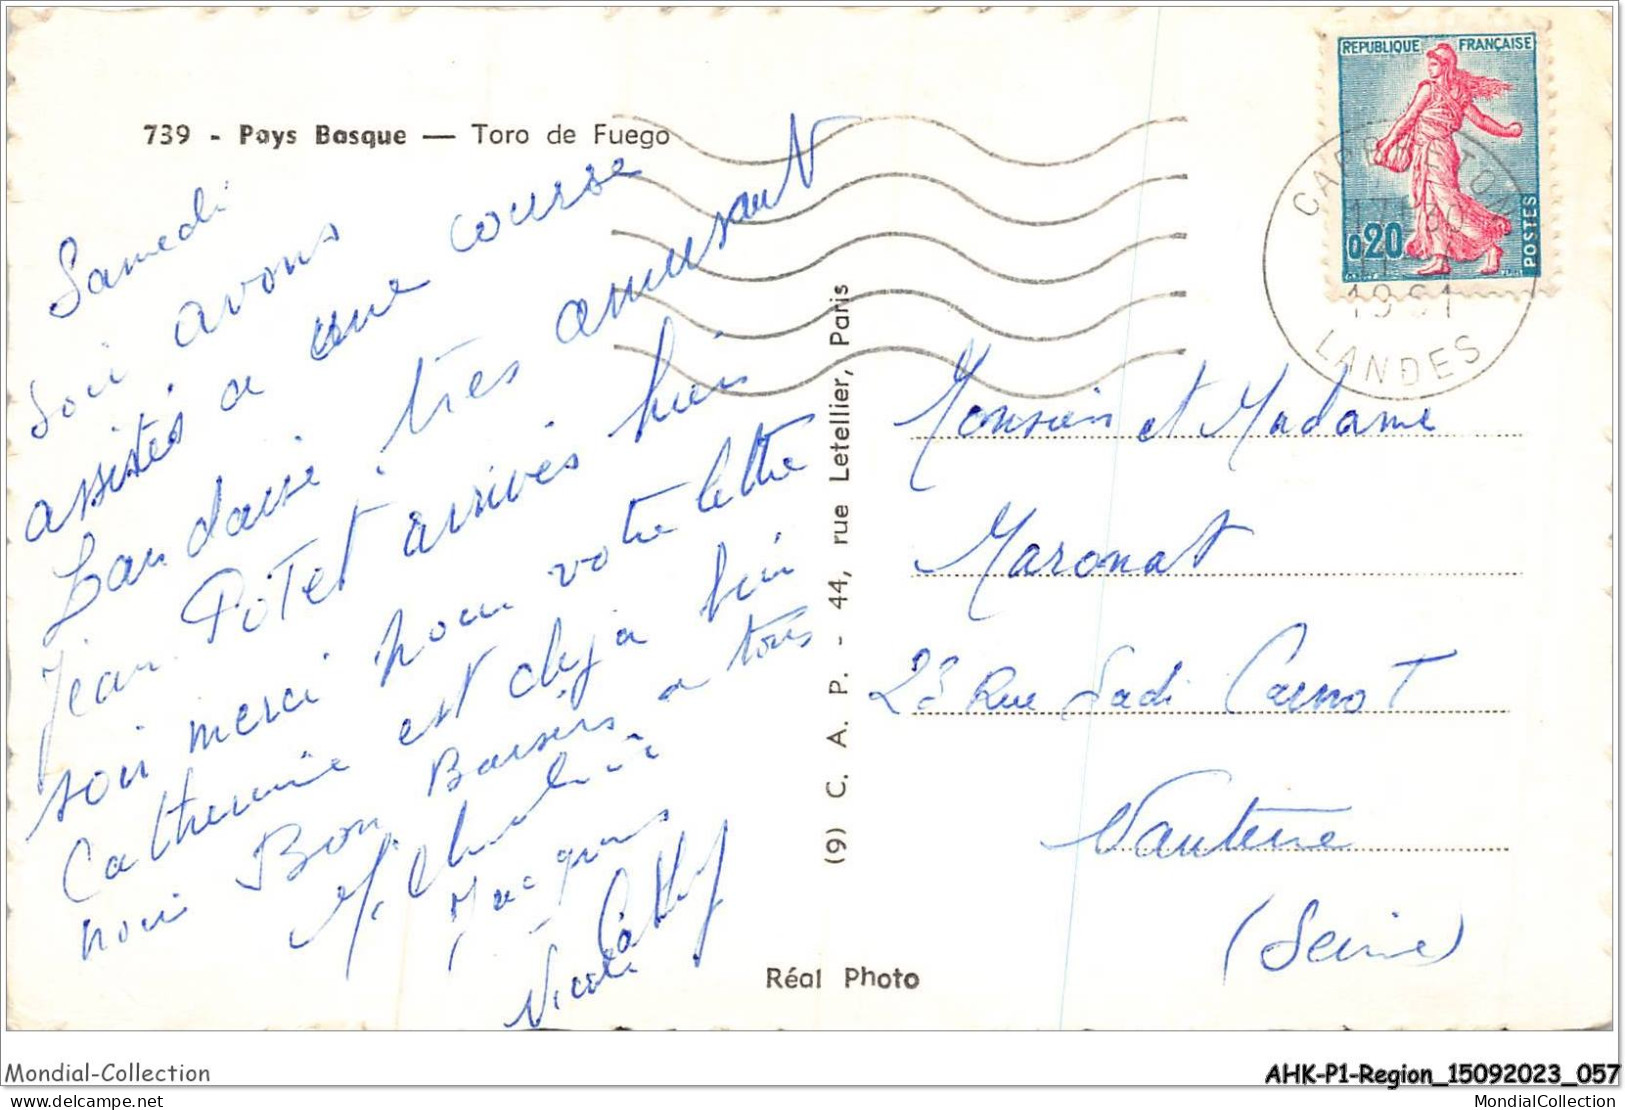 739 - Pays Basque — Toro de Fuego
Samedi
soir avons
assistés a une course
Landaise, très amusant
Jean POTET arrivés hier
soir merci pour votre lettre
Catherine est deja bien
noire Bon Baisers a tous
Jacques
Nicole Cathy
(9) C. A. P. - 44, rue Letellier, Paris
Réal Photo
REPUBLIQUE FRANÇAISE
0,20
POSTES
CAPBRETON
1961
LANDES
Monsieur et Madame
Maronat
23 Rue Sadi Carnot
Nanterre
(Seine)
Mondial-Collection
AHK-P1-Region_15092023_057
delcampe.net
MondialCollection